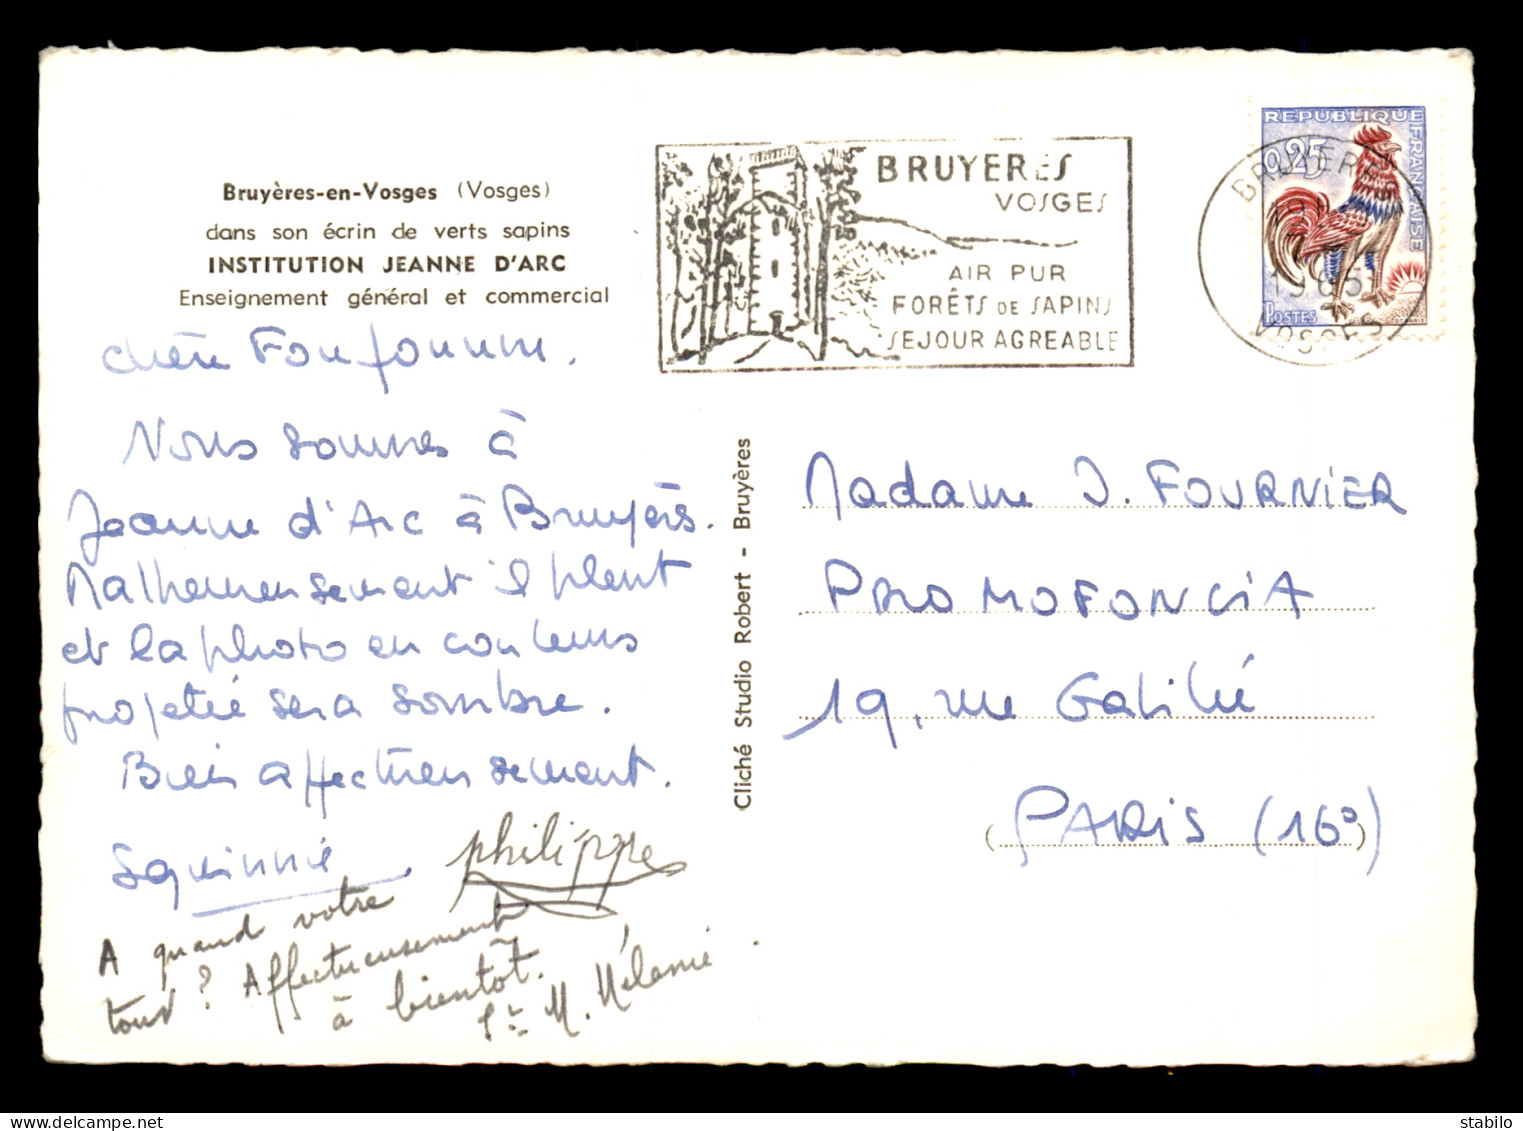 Bruyères-en-Vosges (Vosges)
dans son écrin de verts sapins
INSTITUTION JEANNE D'ARC
Enseignement général et commercial
BRUYERES
VOSGES
AIR PUR
FORÊTS DE SAPINS
SEJOUR AGREABLE
REPUBLIQUE
FRANÇAISE
0,25
POSTES
BRUYERES
1965
VOSGES
chère Founfounne.
Nous sommes à
Jeanne d'Arc à Bruyères.
Malheureusement il pleut
et la photo en couleurs
projetée sera sombre.
Bien affectueusement.
philippe
A quand votre
tour ? Affectueusement
à bientôt.
Sr M. Mélanie.
Cliché Studio Robert - Bruyères
Madame J. FOURNIER
PROMOFONCIA
19, rue Galilée
(PARIS (16e)
delcampe.net
stabilo